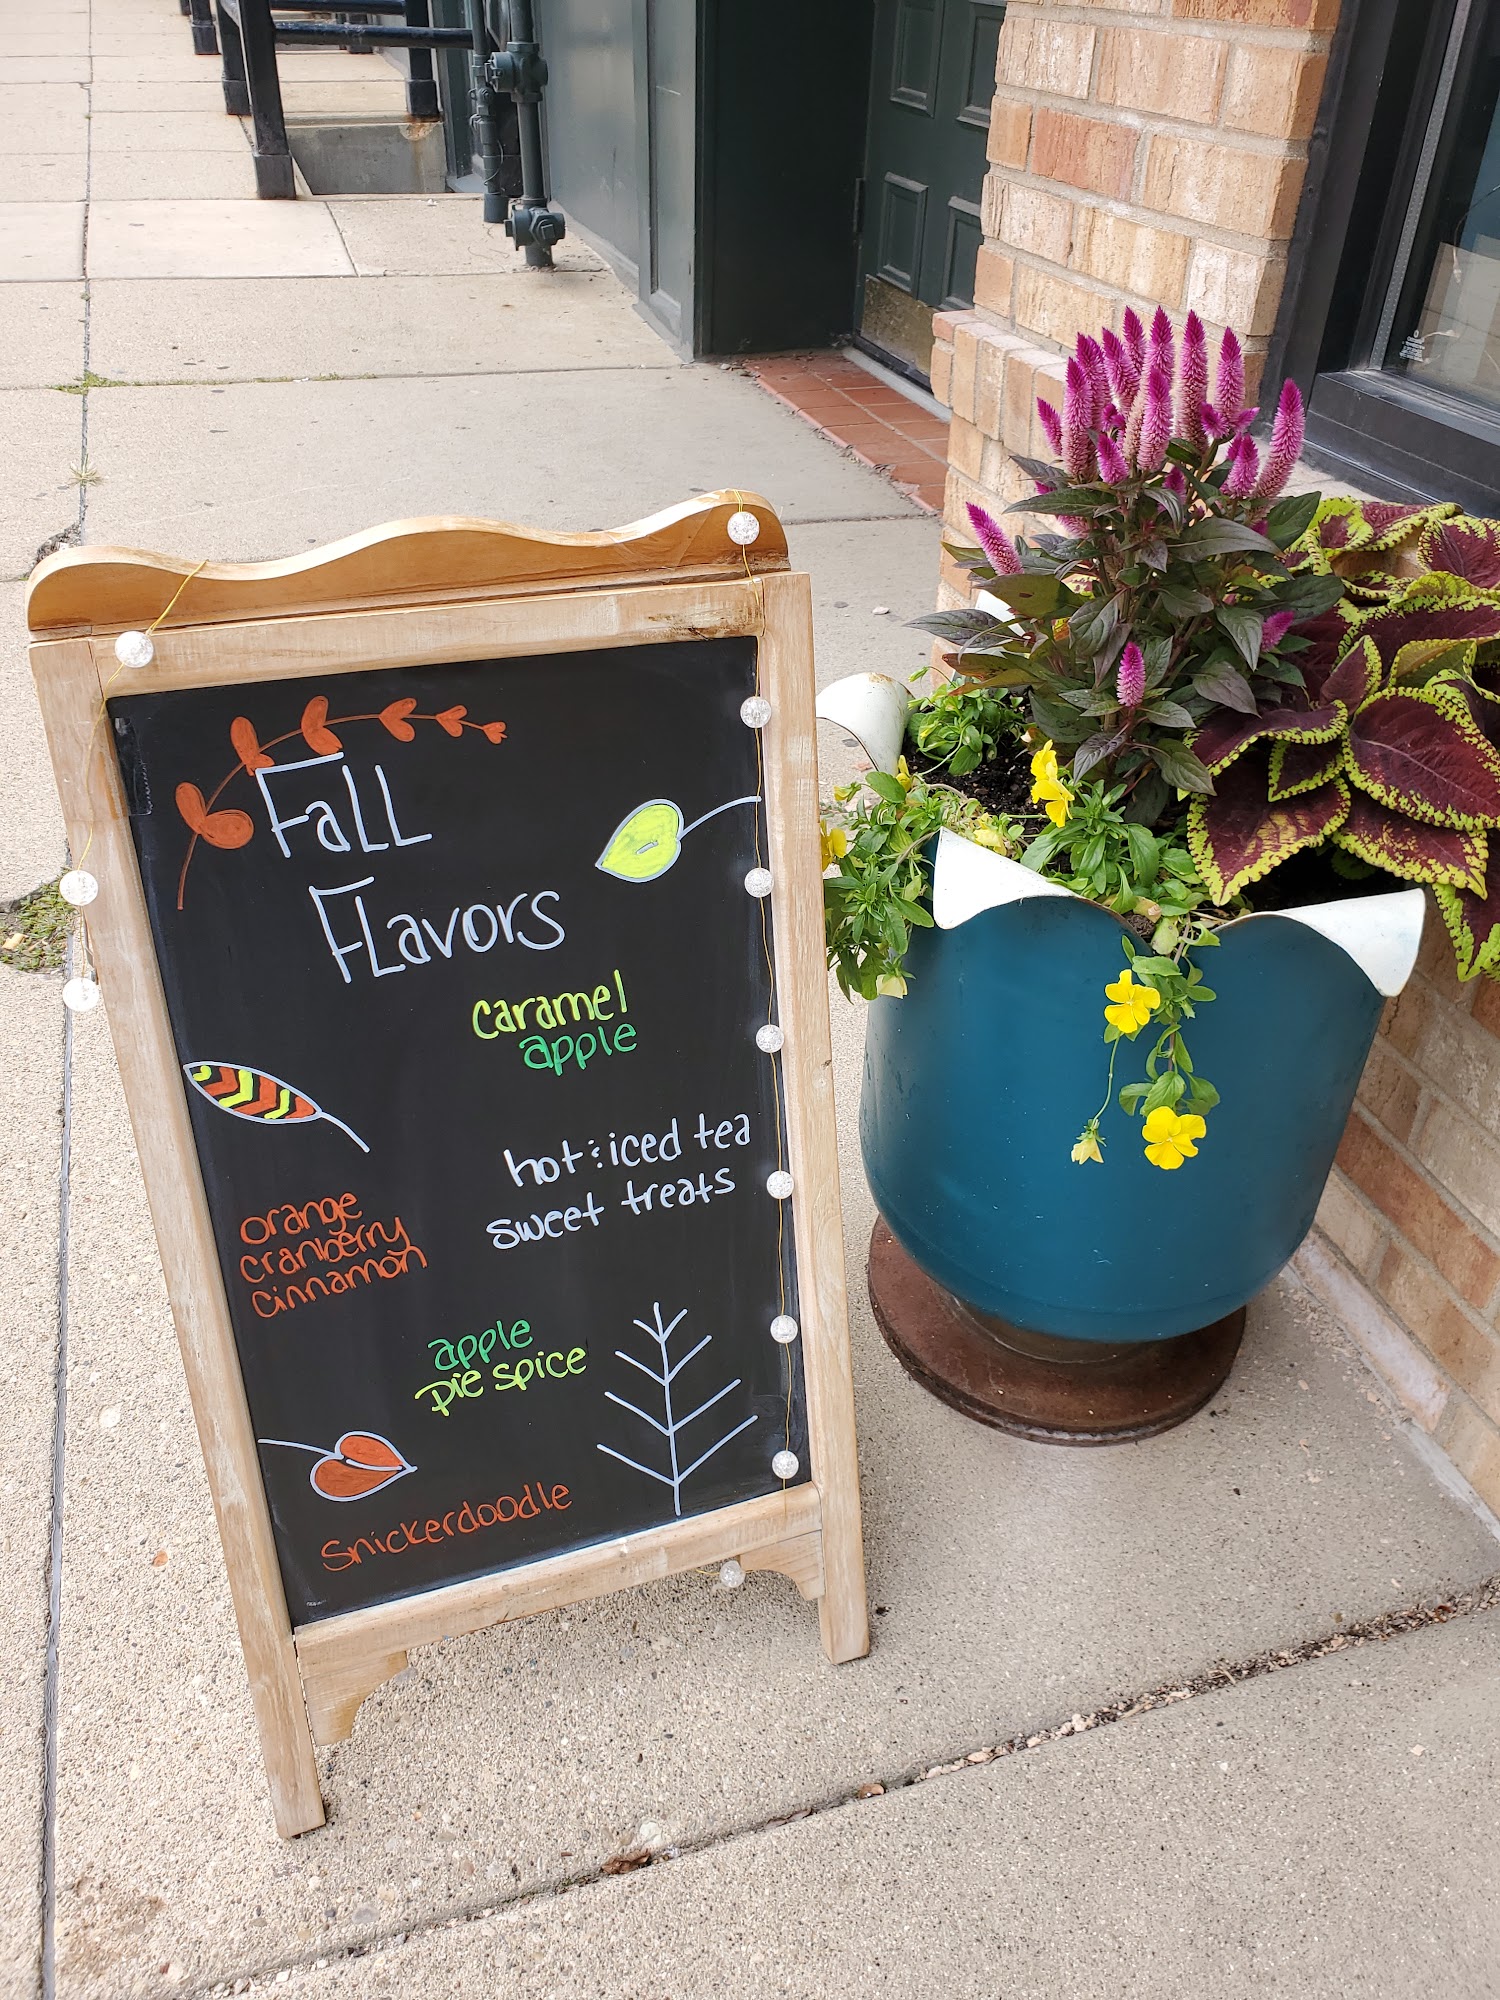 Fall
Flavors
caramel
apple
hot & iced tea
sweet treats
orange
cranberry
cinnamon
apple
pie spice
snickerdoodle